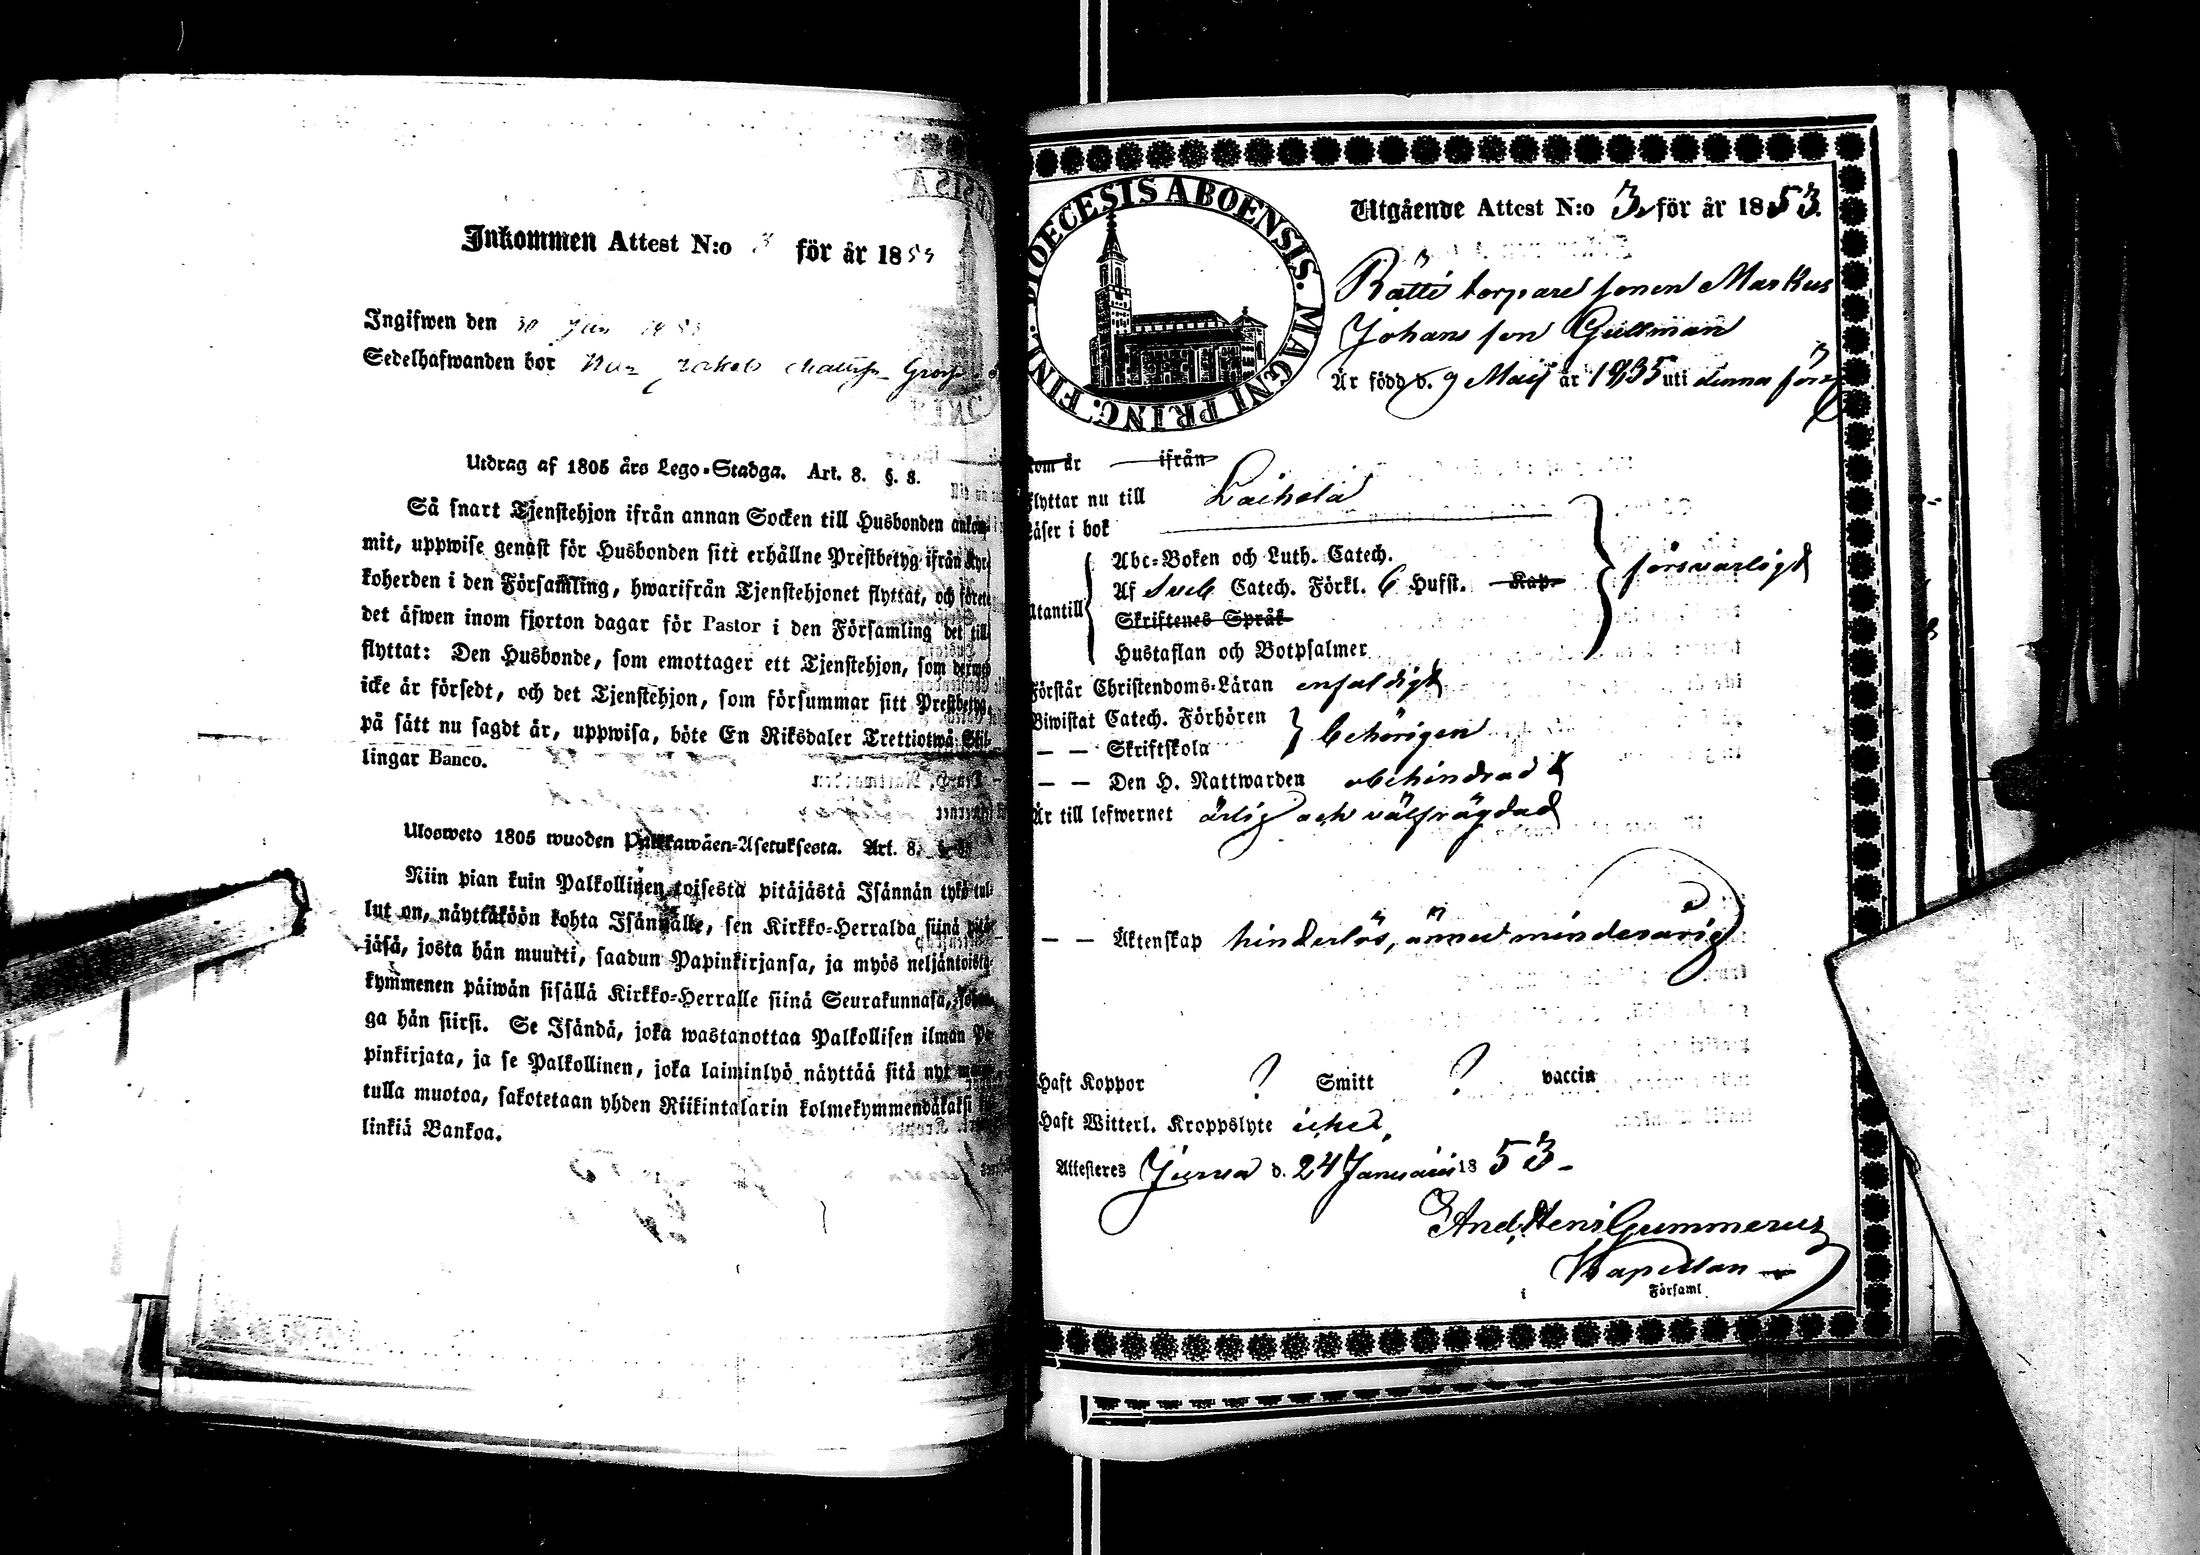 Inkommen Attest N:o 3 för år 1853
Ingifwen den 30 Jan 1853
Sedelhafwanden bor Jakob
Utdrag af 1805 års Lego-Stadga. Art. 8. §. 8.
Så snart Tjenstehjon ifrån annan Socken till Husbonden ankom-
mit, uppwise genast för Husbonden sitt erhållne Prestbetyg ifrån Kyr-
koherden i den Församling, hwarifrån Tjenstehjonet flyttat, och förete
det äfwen inom fjorton dagar för Pastor i den Församling det till
flyttat: Den Husbonde, som emottager ett Tjenstehjon, som dermed
icke är försedt, och det Tjenstehjon, som försummar sitt Prestbetyg,
på sätt nu sagdt är, uppwisa, böte En Riksdaler Trettiotwå Skil-
lingar Banco.
Ulosweto 1805 wuoden Palkkawäen-Asetuksesta. Art. 8.
Niin pian kuin Palkollinen toisesta pitäjästä Isännän tykö tul-
lut on, näyttäköön kohta Isännälle, sen Kirkko-Herralda siinä pitä-
jäsä, josta hän muutti, saadun Papinkirjansa, ja myös neljäntoista-
kymmenen päiwän sisällä Kirkko-Herralle siinä Seurakunnasa,
ga hän siirsi. Se Isändä, joka wastanottaa Palkollisen ilman Pa-
pinkirjata, ja se Palkollinen, joka laiminlyö näyttää sitä nyt
tulla muotoa, sakotetaan yhden Riikintalarin kolmekymmendäkaksi
linkiä Bankoa.
DIOECESIS ABOENSIS. MAGNI PRINC. FINL.
Utgående Attest N:o 3 för år 1853.
Rätti torpare sonen Markus
Johans son Gullman
Är född d. 9 Maij år 1835 uti denna förs
Kom år ifrån
Flyttar nu till Laihela
Läser i bok
Abc-Boken och Luth. Catech.
Af Sveb Catech. Förkl. 6 Hufst. Kap.
försvarligt
Utantill
Skriftenes Språk
Hustaflan och Botpsalmer
Förstår Christendoms-Läran enfaldigt
Biwistat Catech. Förhören
— — Skriftskola
behörigen
— — Den H. Nattwarden obehindrad
Är till lefwernet ärlig och välfrägdad
— — Äktenskap hinderlös, ännu minderårig
Haft Koppor ? Smitt ? vaccin
Haft Witterl. Kroppslyte icke
Attesteres Jurva d. 24 Januarii 1853
And. Gummerus
Kapellan
i Församl